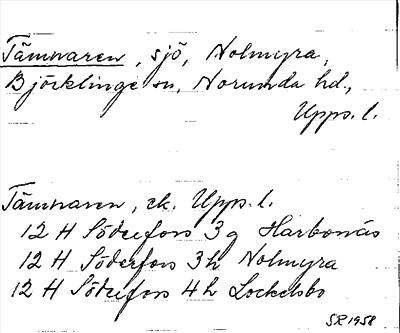 Tämnaren, sjö, Nolmyra,
Björklinge sn, Norunda hd.,
Upps. l.
Tämnaren, ek. Upps. l.
12 H Söderfors 3 g Harbonäs
12 H Söderfors 3 h Nolmyra
12 H Söderfors 4 h Lockelsbo
SR 1958